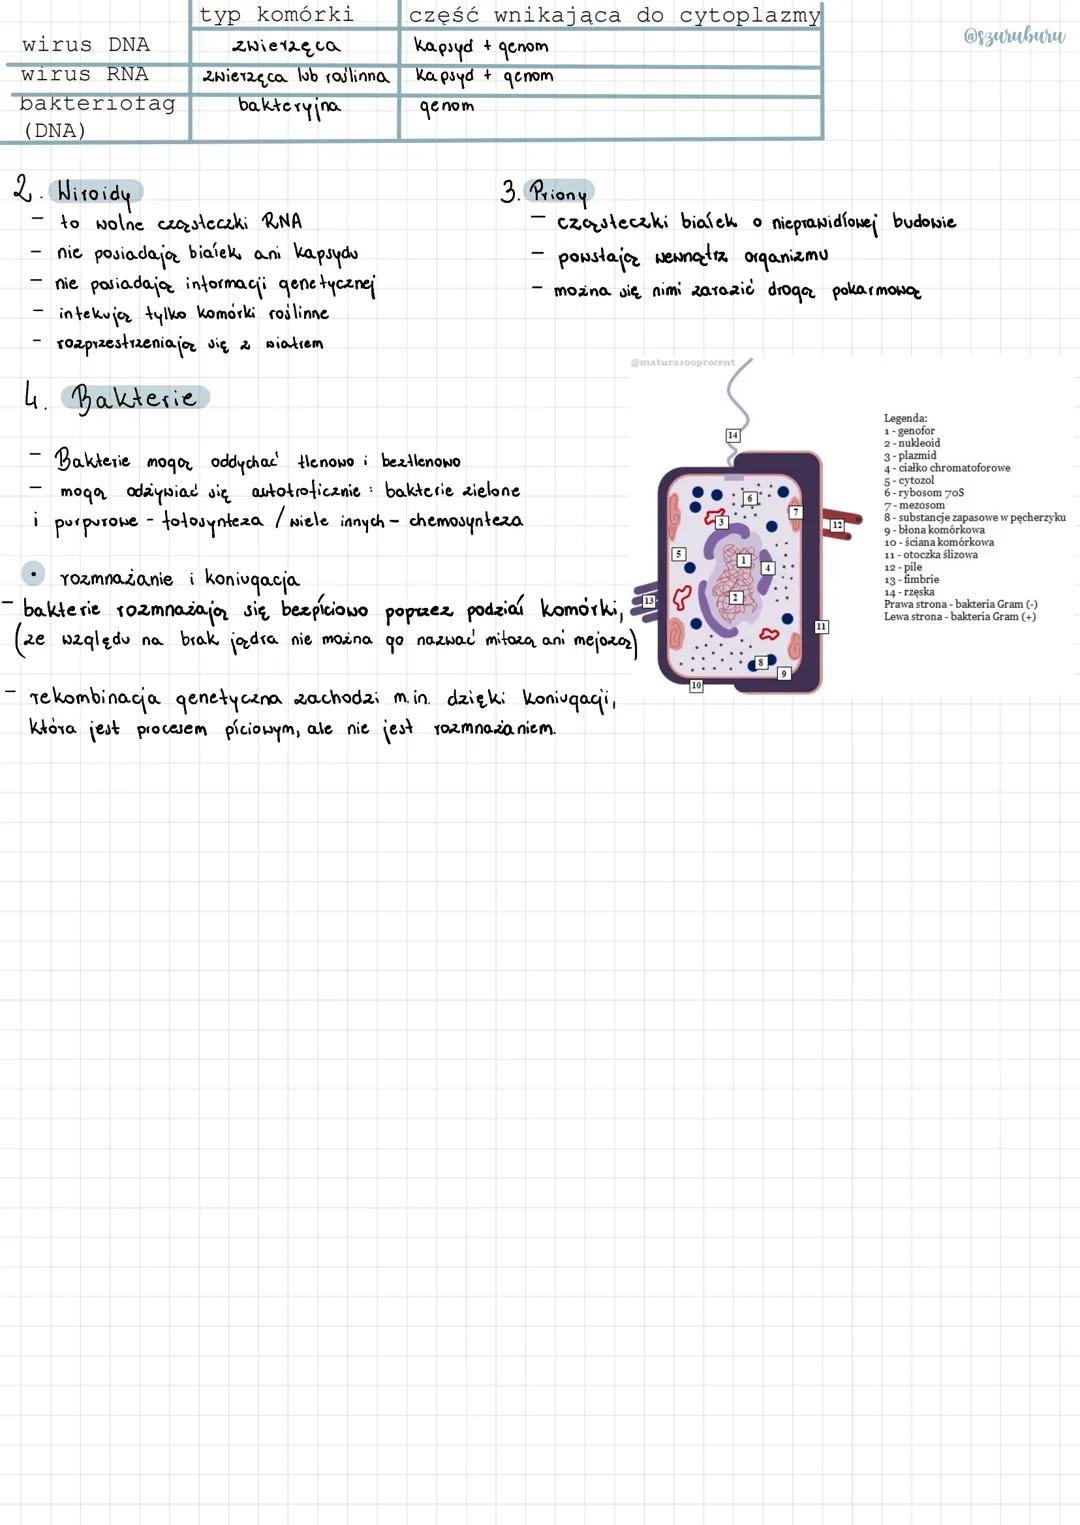 typ komórki część wnikająca do cytoplazmy
@szuruburu
wirus DNA zwierzęca kapsyd + genom
wirus RNA zwierzęca lub roślinna kapsyd + genom
bakteriofag bakteryjna genom
(DNA)
2. Wiroidy
- to wolne cząsteczki RNA
- nie posiadają białek ani kapsydu
- nie posiadają informacji genetycznej
- infekują tylko komórki roślinne
- rozprzestrzeniają się z wiatrem
3. Priony
- cząsteczki białek o nieprawidłowej budowie
- powstają wewnątrz organizmu
- można się nimi zarazić drogą pokarmową
4. Bakterie
- Bakterie mogą oddychać tlenowo i beztlenowo
- mogą odżywiać się autotroficznie : bakterie zielone
i purpurowe - fotosynteza / wiele innych - chemosynteza
• rozmnażanie i koniugacja
- bakterie rozmnażają się bezpłciowo poprzez podział komórki,
(ze względu na brak jądra nie można go nazwać mitozą ani mejozą)
- rekombinacja genetyczna zachodzi m.in. dzięki koniugacji,
która jest procesem płciowym, ale nie jest rozmnażaniem.
@matura100procent
14
6
3
7
12
5
1
4
2
13
11
8
9
10
Legenda:
1 - genofor
2 - nukleoid
3 - plazmid
4 - ciałko chromatoforowe
5 - cytozol
6 - rybosom 70S
7 - mezosom
8 - substancje zapasowe w pęcherzyku
9 - błona komórkowa
10 - ściana komórkowa
11 - otoczka śluzowa
12 - pile
13 - fimbrie
14 - rzęska
Prawa strona - bakteria Gram (-)
Lewa strona - bakteria Gram (+)